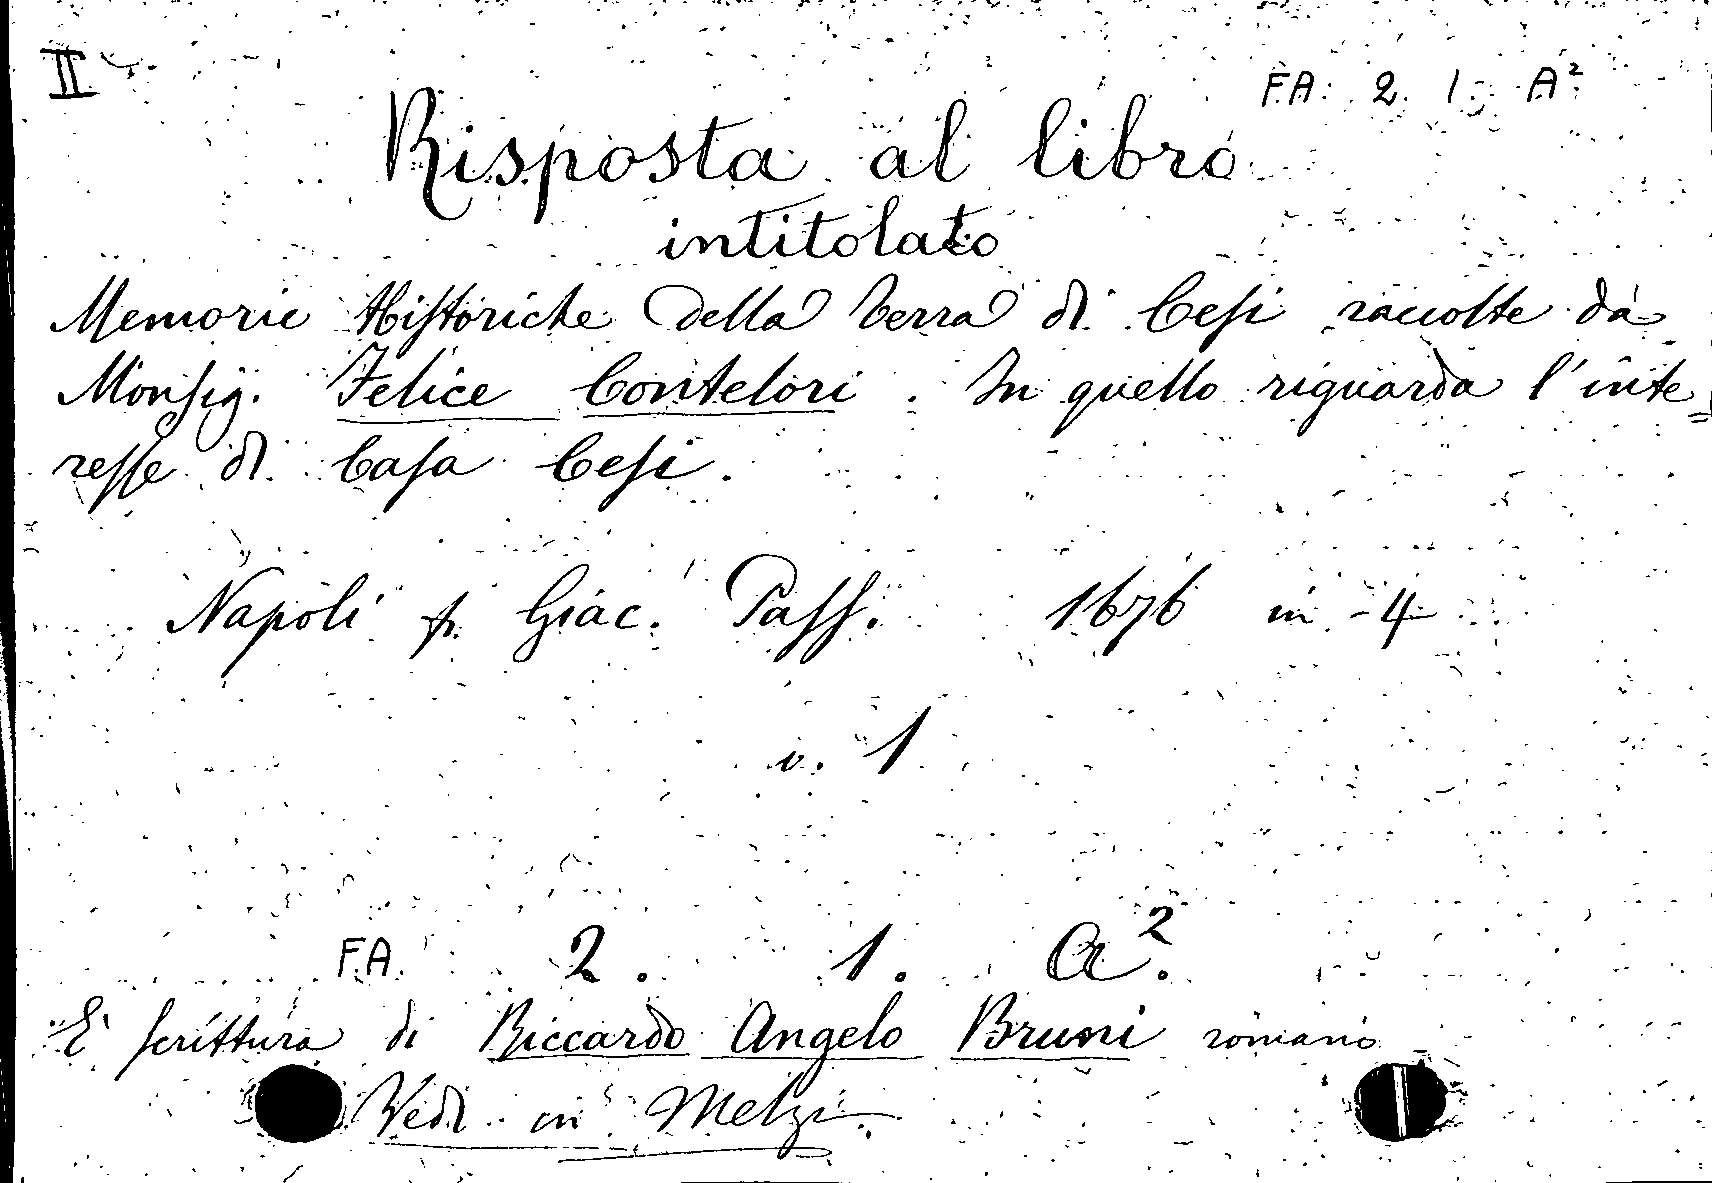 II
F.A. 2. 1. A²
Risposta al libro
intitolato
Memorie Historiche della Terra di Cesi raccolte da
Monsig. Felice Contelori. In quello riguarda l'inte=
resse di Casa Cesi.
Napoli p. Giac. Pass. 1676 in-4
v. 1
F.A. 2. 1. A².
E' scrittura di Riccardo Angelo Bruni romano
Vedi in Melzi.